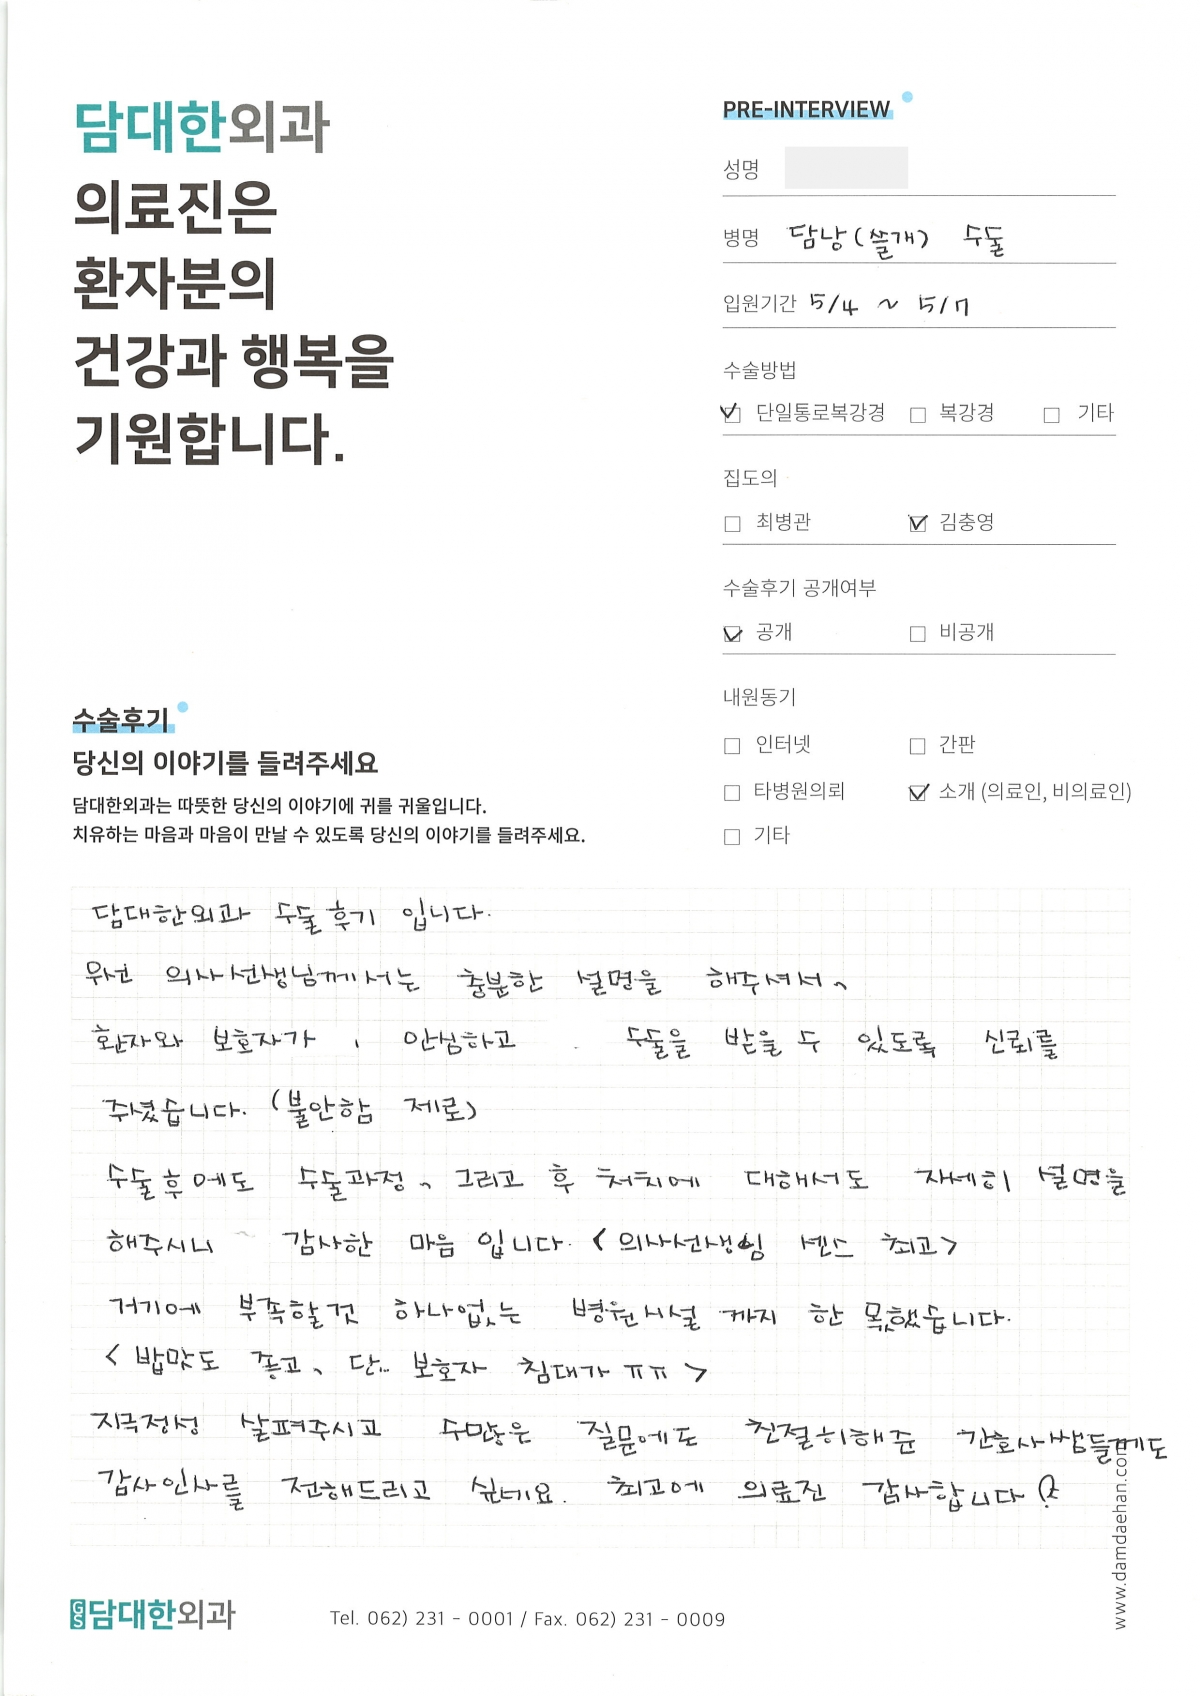 담대한외과
의료진은
환자분의
건강과 행복을
기원합니다.
PRE-INTERVIEW
성명
병명 담낭(쓸개) 수술
입원기간 5/4 ~ 5/7
수술방법
단일통로복강경 복강경 기타
집도의
최병관 김충영
수술후기 공개여부
공개 비공개
내원동기
인터넷 간판
타병원의뢰 소개 (의료인, 비의료인)
기타
수술후기
당신의 이야기를 들려주세요
담대한외과는 따뜻한 당신의 이야기에 귀를 귀울입니다.
치유하는 마음과 마음이 만날 수 있도록 당신의 이야기를 들려주세요.
담대한외과 수술후기 입니다.
우선 의사선생님께서는 충분한 설명을 해주셔서,
환자와 보호자가, 안심하고 수술을 받을 수 있도록 신뢰를
주셨습니다. (불안함 제로)
수술후에도 수술과정, 그리고 후 처치에 대해서도 자세히 설명을
해주시니 ~ 감사한 마음 입니다. <의사선생님 센스 최고>
거기에 부족할것 하나없는 병원시설 까지 한 몫했습니다.
< 밥맛도 좋고, 단.. 보호자 침대가 ㅠㅠ >
지극정성 살펴주시고 수많은 질문에도 친절히해준 간호사쌤들께도
감사인사를 전해드리고 싶네요. 최고에 의료진 감사합니다
GS 담대한외과
Tel. 062) 231 - 0001 / Fax. 062) 231 - 0009
www.damdaehan.com